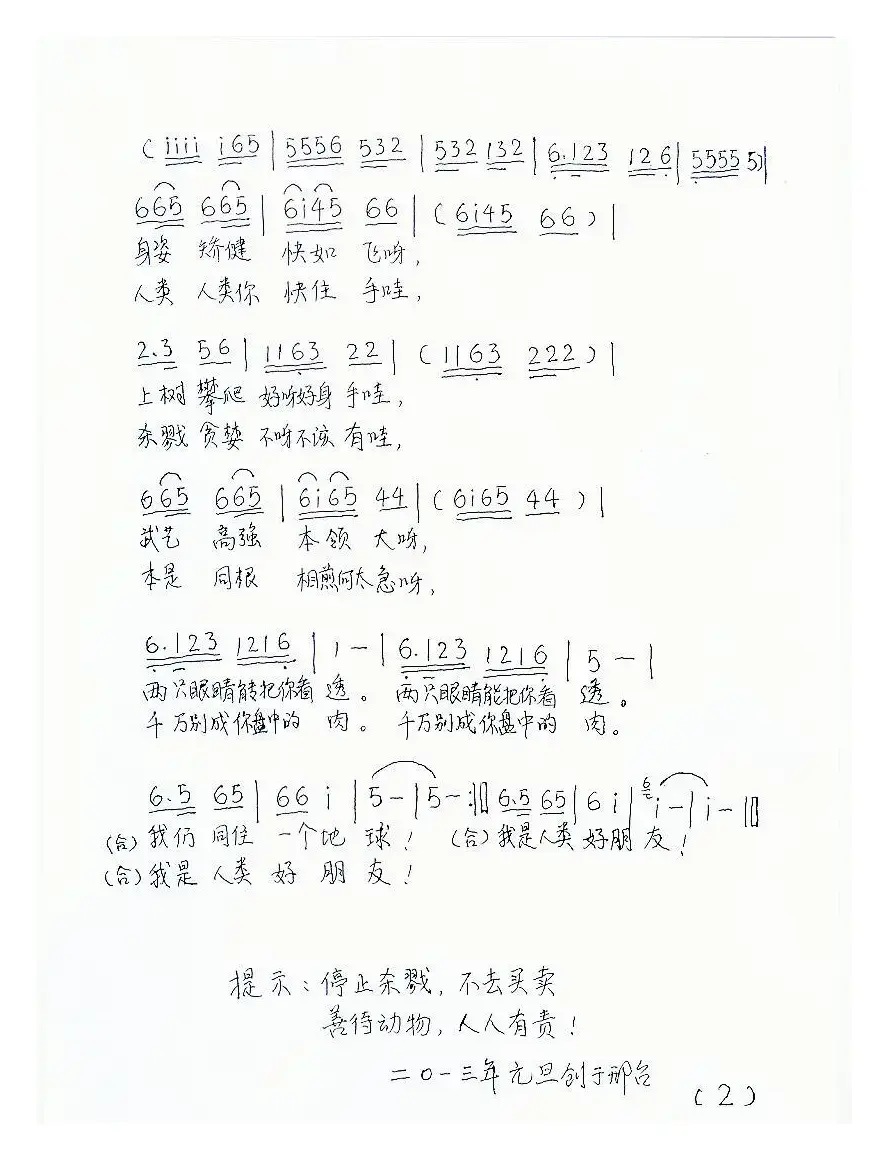 (i̇i̇i̇i̇ i̇65 | 5556 532 | 532 132 | 6.123 126 | 5555 5)|
665 665 | 6i̇45 66 | (6i̇45 66) |
身姿 矫健 快如 飞呀，
人类 人类你 快住 手哇，
2.3 56 | 1163 22 | (1163 222) |
上树 攀爬 好呀好身 手哇，
杀戮 贪婪 不呀不该 有哇，
665 665 | 6i̇65 44 | (6i̇65 44) |
武艺 高强 本领 大呀，
本是 同根 相煎何太急呀，
6.123 1216 | 1 — | 6.123 1216 | 5 — |
两只眼睛能把你看 透。 两只眼睛能把你看 透。
千万别成你盘中的 肉。 千万别成你盘中的 肉。
6.5 65 | 66 i̇ | 5 — | 5 — :‖ 6.5 65 | 6 i̇ | 6 i̇ — | i̇ — ‖
(合) 我们 同住 一个地 球！ (合) 我是人类 好朋 友！
(合) 我是 人类 好 朋 友！
提示：停止杀戮，不去买卖
善待动物，人人有责！
二〇一三年元旦创于邢台
(2)